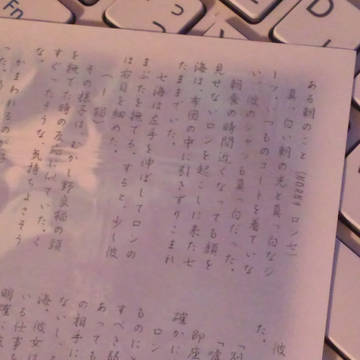 ある朝のこと (HORNY ロン七)
真っ白い朝の光と真っ白なシ
ーツ。いつものコートを着ていな
い、彼のシャツも真っ白だった。
朝食の時間近くなっても顔を
見せないロンを起こしに来た七
海は、布団の中に引きずりこまれ
たままでいた。
七海は左手を伸ばしてロンの
まぶたを撫でる。すると、少し彼
は右目を細めた。
(……猫)
その様子は、むかし野良猫の頭
を撫でた時の反応に似ていた。く
すぐったそうな、気持ちよさそう
な。
かまわれるのが
った。
彼
た。
「
「嘘
即座
確かに
ロン
ものに
すべき
あっても
の相手に
ないし、
海。彼女は
いる仕事も
明確に